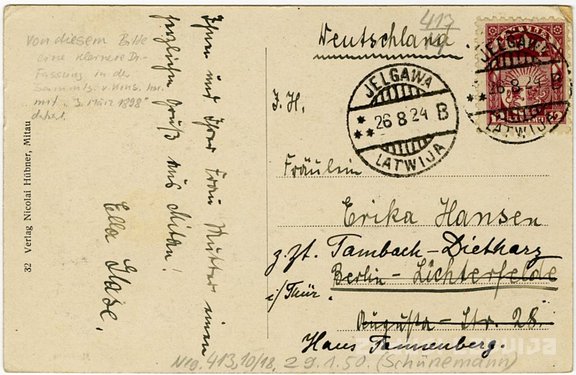 417
Von diesem
eine kleinere
Fassung in der
mit "3. März 1898"
datiert.
Ihnen und Ihrer Frau Mutter einen
herzlichen Gruß aus Mitau!
Ella
32 Verlag Nicolai Hübner, Mitau
Deutschland
JELGAWA
26 8 24 B
LATWIJA
JELGAWA
26 8 24 B
LATWIJA
Fräulein
Erika Hansen
z. Zt. Tambach-Dietharz
Berlin-Lichterfelde
i/Thür.
Augusta-Str. 28.
Haus Tannenberg.
413, 10/18, 29.1.50. (Schünemann)